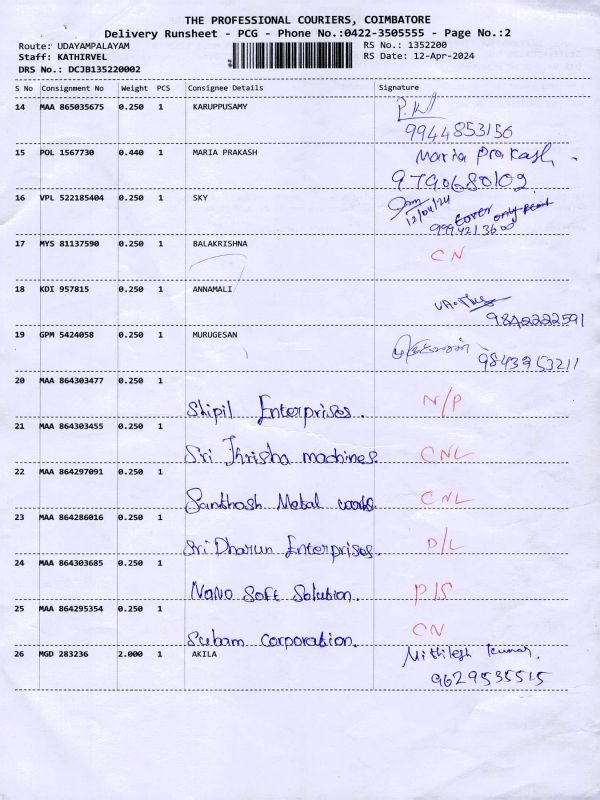 THE PROFESSIONAL COURIERS, COIMBATORE
Delivery Runsheet - PCG - Phone No.:0422-3505555 - Page No.:2
Route: UDAYAMPALAYAM RS No.: 1352200
Staff: KATHIRVEL RS Date: 12-Apr-2024
DRS No.: DCJB135220002
S No Consignment No Weight PCS Consignee Details Signature
14 MAA 865035675 0.250 1 KARUPPUSAMY
9944853156
15 POL 1567730 0.440 1 MARIA PRAKASH Maria Prakash
9790680102
16 VPL 522185404 0.250 1 SKY
12/04/24 Cover only
9994213600
17 MYS 81137590 0.250 1 BALAKRISHNA CN
18 KDI 957815 0.250 1 ANNAMALI
9842222591
19 GPM 5424058 0.250 1 MURUGESAN முருகேசன்
9843253211
20 MAA 864303477 0.250 1
Shipil Enterprises. N/P
21 MAA 864303455 0.250 1
Sri Thrisha machines. CNL
22 MAA 864297091 0.250 1
Santhosh Metal works. CNL
23 MAA 864286016 0.250 1
Sri Dharun Enterprises. D/L
24 MAA 864303685 0.250 1
Nano Soft Solution. P/S
25 MAA 864295354 0.250 1
Subam Corporation. CN
26 MGD 283236 2.000 1 AKILA Mithilesh Kumar.
9629535515